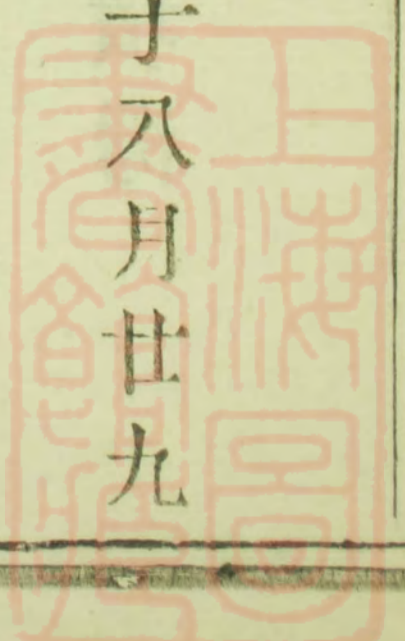 于八月廿九
上海圖
書館藏